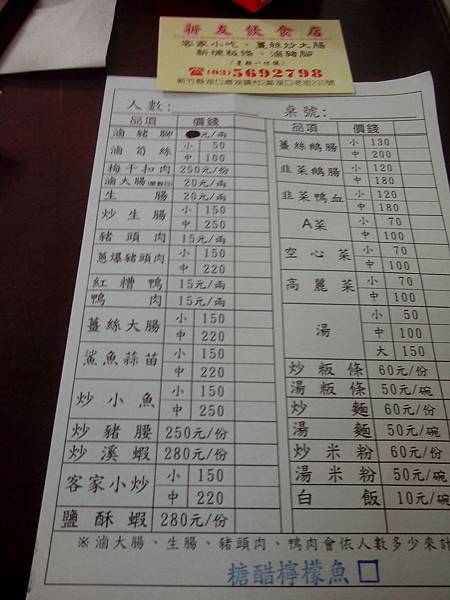 新友飲食店
客家小吃、薑絲炒大腸
新埔粄條、滷豬腳
(星期一休假)
☎(03)5692798
人數:
桌號:
品項 價錢
滷豬腳 元/兩
滷筍絲 小 50
中 100
梅干扣肉 250元/份
滷大腸 20元/兩
生腸 20元/兩
炒生腸 小 150
中 250
豬頭肉 15元/兩
蔥爆豬頭肉 小 150
中 220
紅糟鴨 15元/兩
鴨肉 15元/兩
薑絲大腸 小 150
中 220
鯊魚蒜苗 小 150
中 220
炒小魚 小 150
中 250
炒豬腰 250元/份
炒溪蝦 280元/份
客家小炒 小 150
中 220
鹽酥蝦 280元/份
品項 價錢
薑絲鵝腸 小 130
中 200
韭菜鵝腸 小 120
中 180
韭菜鴨血 小 120
中 180
A菜 小 70
中 100
空心菜 小 70
中 100
高麗菜 小 70
中 100
湯 小 50
中 100
大 150
炒粄條 60元/份
湯粄條 50元/碗
炒麵 60元/份
湯麵 50元/碗
炒米粉 60元/份
湯米粉 50元/碗
白飯 10元/碗
※滷大腸、生腸、豬頭肉、鴨肉會依人數多少來計
糖醋檸檬魚□